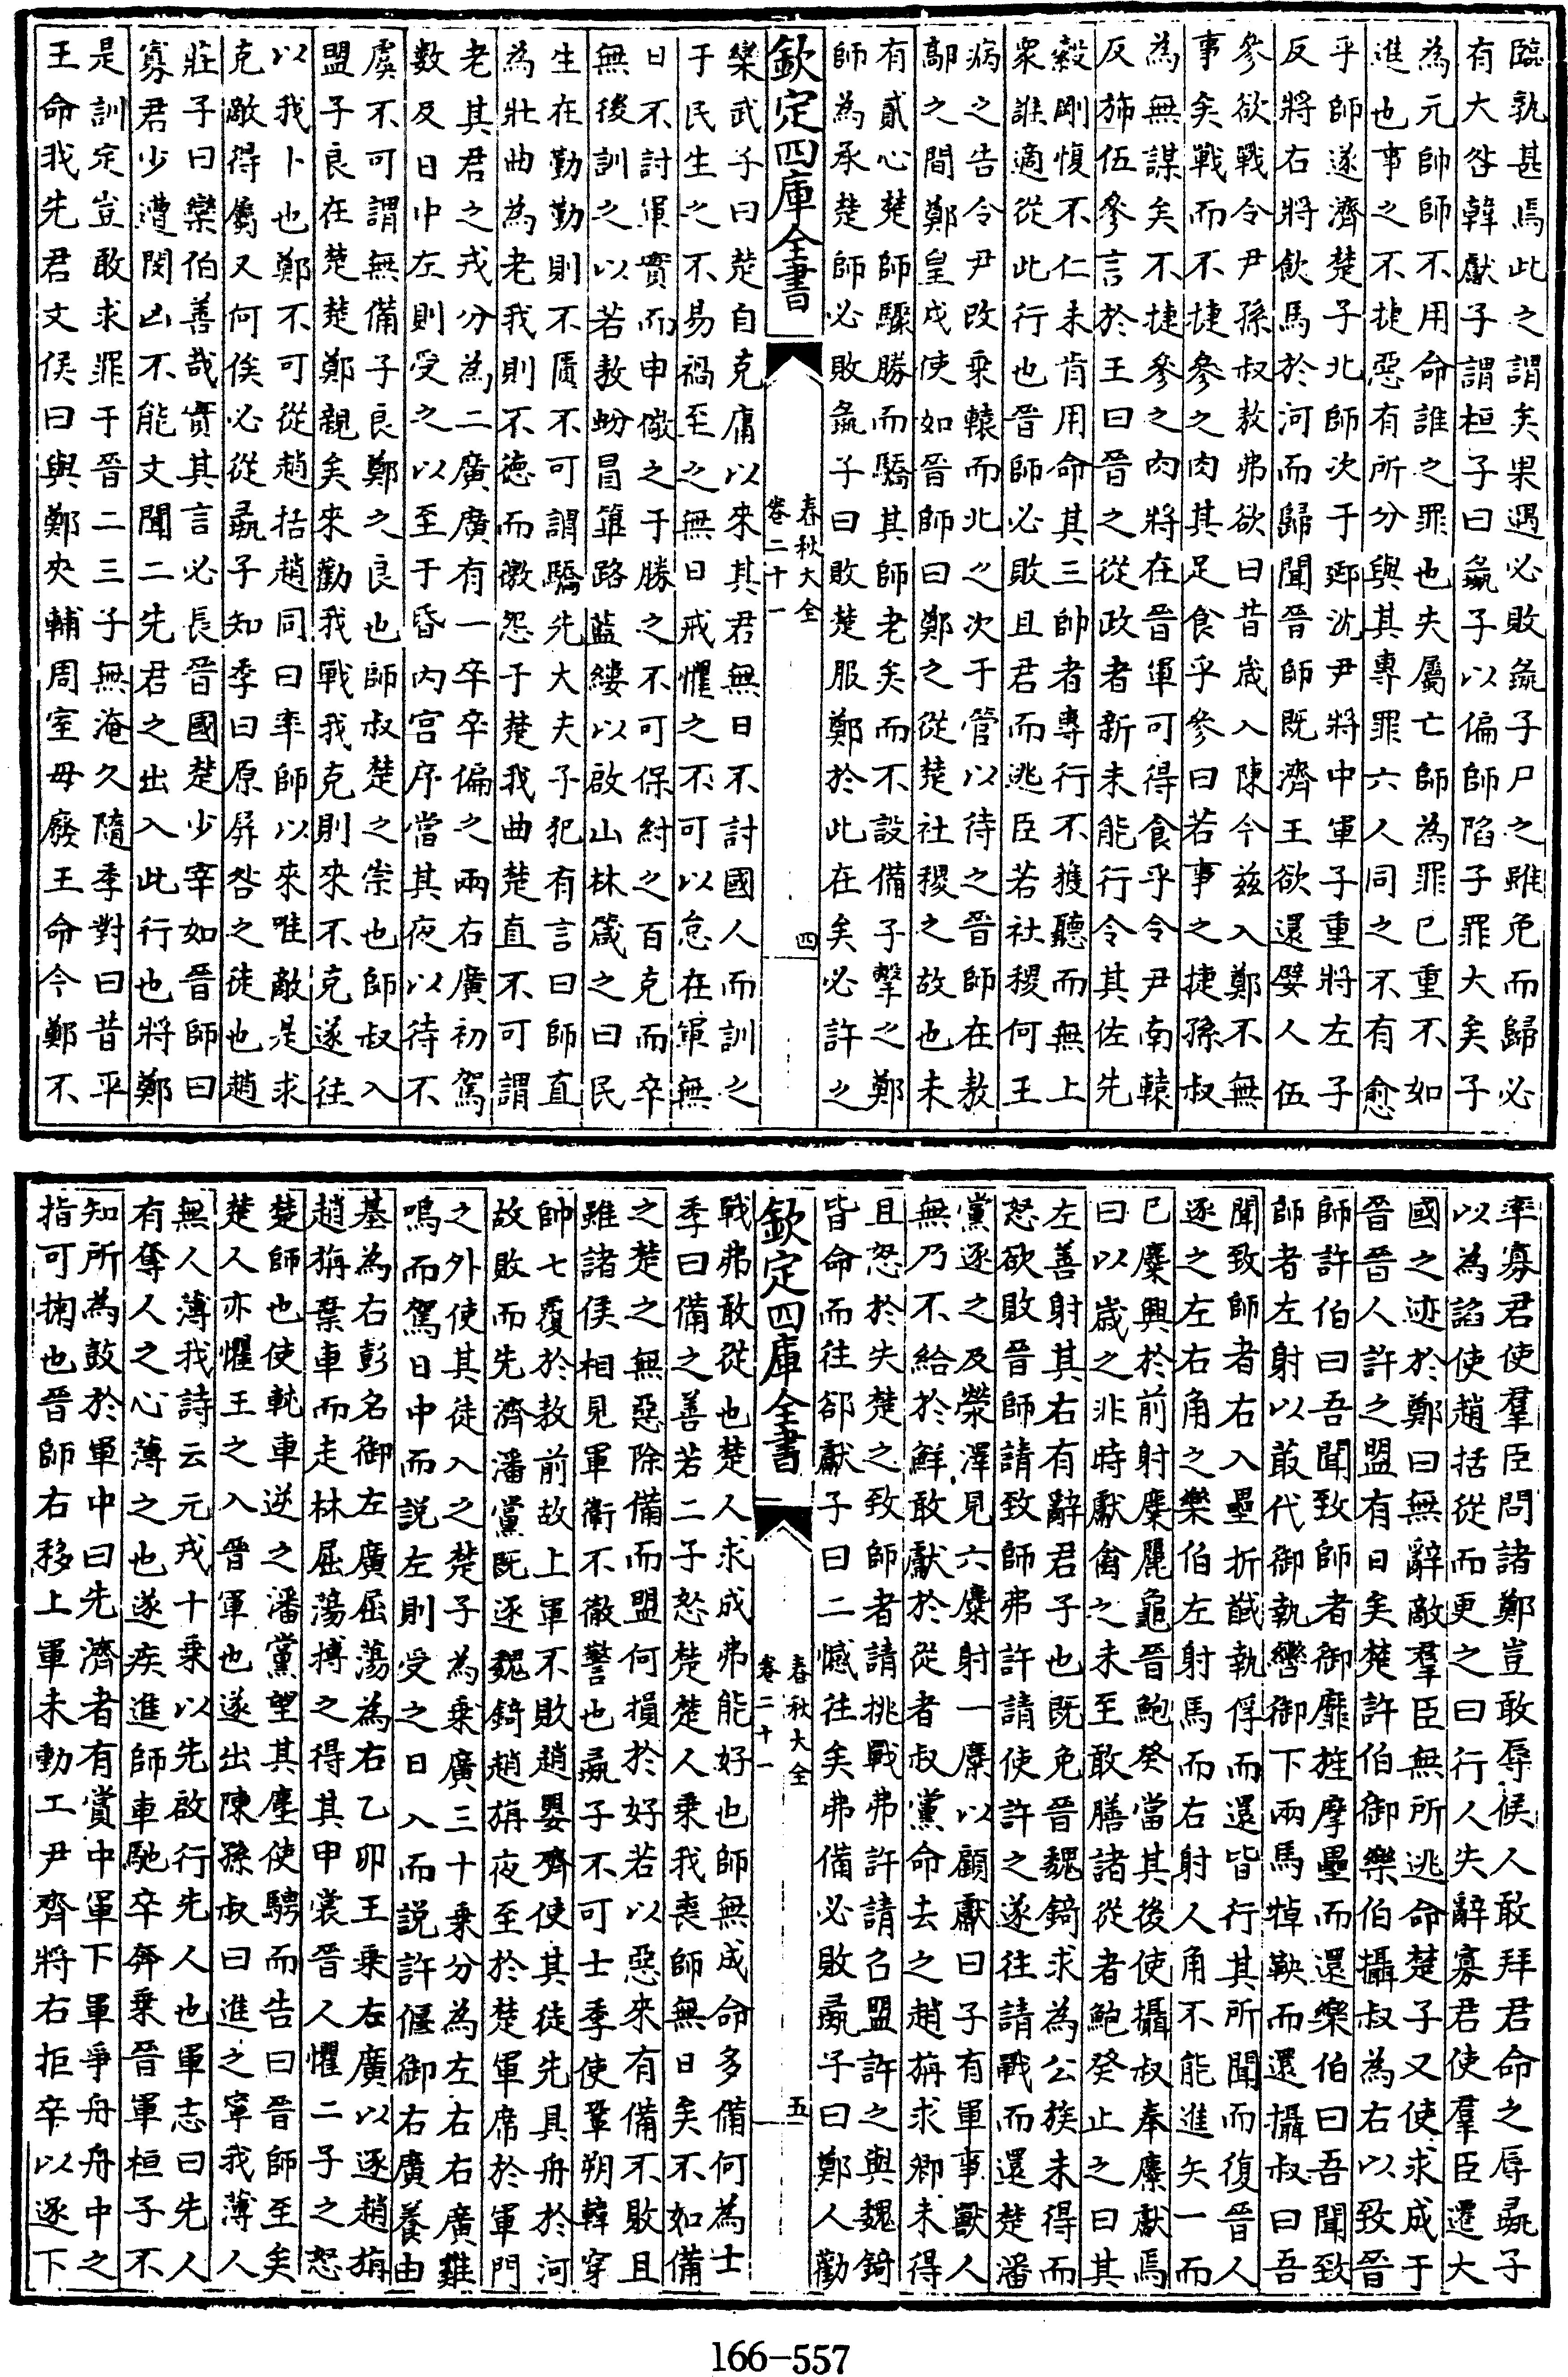 臨孰甚焉此之謂矣果遇必敗彘子尸之雖免而歸必
有大咎韓獻子謂桓子曰彘子以偏師陷子罪大矣子
為元帥師不用命誰之罪也失屬亡師為罪已重不如
進也事之不捷惡有所分與其專罪六人同之不有愈
乎師遂濟楚子北師次于郔沈尹將中軍子重將左子
反將右將飲馬於河而歸聞晉師既濟王欲還嬖人伍
參欲戰令尹孫叔敖弗欲曰昔嵗入陳今兹入鄭不無
事矣戰而不捷參之肉其足食乎參曰若事之捷孫叔
為無謀矣不捷參之肉將在晉軍可得食乎令尹南轅
反斾伍參言於王曰晉之從政者新未能行令其佐先
縠剛愎不仁未肯用命其三帥者專行不獲聽而無上
衆誰適從此行也晉師必敗且君而逃臣若社稷何王
病之告令尹改乗轅而北之次于管以待之晉師在敖
鄗之間鄭皇戍使如晉師曰鄭之從楚社稷之故也未
有貳心楚師驟勝而驕其師老矣而不設備子擊之鄭
師為承楚師必敗彘子曰敗楚服鄭於此在矣必許之
欽定四庫全書
春秋大全
卷二十一
四
欒武子曰楚自克庸以來其君無日不討國人而訓之
于民生之不易禍至之無日戒懼之不可以怠在軍無
日不討軍實而申儆之于勝之不可保紂之百克而卒
無後訓之以若敖蚡冒篳路藍縷以啟山林箴之曰民
生在勤勤則不匱不可謂驕先大夫子犯有言曰師直
為壯曲為老我則不徳而徼怨于楚我曲楚直不可謂
老其君之戎分為二廣廣有一卒卒偏之兩右廣初駕
數及日中左則受之以至于昏内官序當其夜以待不
虞不可謂無備子良鄭之良也師叔楚之崇也師叔入
盟子良在楚楚鄭親矣來勸我戰我克則來不克遂往
以我卜也鄭不可從趙括趙同曰率師以來唯敵是求
克敵得屬又何俟必從彘子知季曰原屏咎之徒也趙
莊子曰欒伯善哉實其言必長晉國楚少宰如晉師曰
寡君少遭閔凶不能文聞二先君之出入此行也將鄭
是訓定豈敢求罪于晉二三子無淹久隨季對曰昔平
王命我先君文侯曰與鄭夾輔周室毋廢王命今鄭不
率寡君使羣臣問諸鄭豈敢辱候人敢拜君命之辱彘子
以為諂使趙括從而更之曰行人失辭寡君使羣臣遷大
國之迹於鄭曰無辟敵羣臣無所逃命楚子又使求成于
晉晉人許之盟有日矣楚許伯御樂伯攝叔為右以致晉
師許伯曰吾聞致師者御靡旌摩壘而還樂伯曰吾聞致
師者左射以菆代御執轡御下兩馬掉鞅而還攝叔曰吾
聞致師者右入壘折馘執俘而還皆行其所聞而復晉人
逐之左右角之樂伯左射馬而右射人角不能進矢一而
已麋興於前射麋麗龜晉鮑癸當其後使攝叔奉麋獻焉
曰以嵗之非時獻禽之未至敢膳諸從者鮑癸止之曰其
左善射其右有辭君子也既免晉魏錡求為公族未得而
怒欲敗晉師請致師弗許請使許之遂往請戰而還楚潘
黨逐之及熒澤見六麋射一麋以顧獻曰子有軍事獸人
無乃不給於鮮敢獻於從者叔黨命去之趙旃求卿未得
且怒於失楚之致師者請挑戰弗許請召盟許之與魏錡
皆命而往郤獻子曰二憾往矣弗備必敗彘子曰鄭人勸
欽定四庫全書
春秋大全
卷二十一
五
戰弗敢從也楚人求成弗能好也師無成命多備何為士
季曰備之善若二子怒楚楚人乗我喪師無日矣不如備
之楚之無惡除備而盟何損於好若以惡來有備不敗且
雖諸侯相見軍衛不徹警也彘子不可士季使鞏朔韓穿
帥七覆於敖前故上軍不敗趙嬰齊使其徒先具舟於河
故敗而先濟潘黨既逐魏錡趙旃夜至於楚軍席於軍門
之外使其徒入之楚子為乗廣三十乗分為左右右廣雞
鳴而駕日中而説左則受之日入而説許偃御右廣養由
基為右彭名御左廣屈蕩為右乙卯王乗左廣以逐趙旃
趙旃棄車而走林屈蕩搏之得其甲裳晉人懼二子之怒
楚師也使軘車逆之潘黨望其塵使騁而告曰晉師至矣
楚人亦懼王之入晉軍也遂出陳孫叔曰進之寧我薄人
無人薄我詩云元戎十乗以先啟行先人也軍志曰先人
有奪人之心薄之也遂疾進師車馳卒奔乗晉軍桓子不
知所為鼓於軍中曰先濟者有賞中軍下軍爭舟舟中之
指可掬也晉師右移上軍未動工尹齊將右拒卒以逐下
166-557